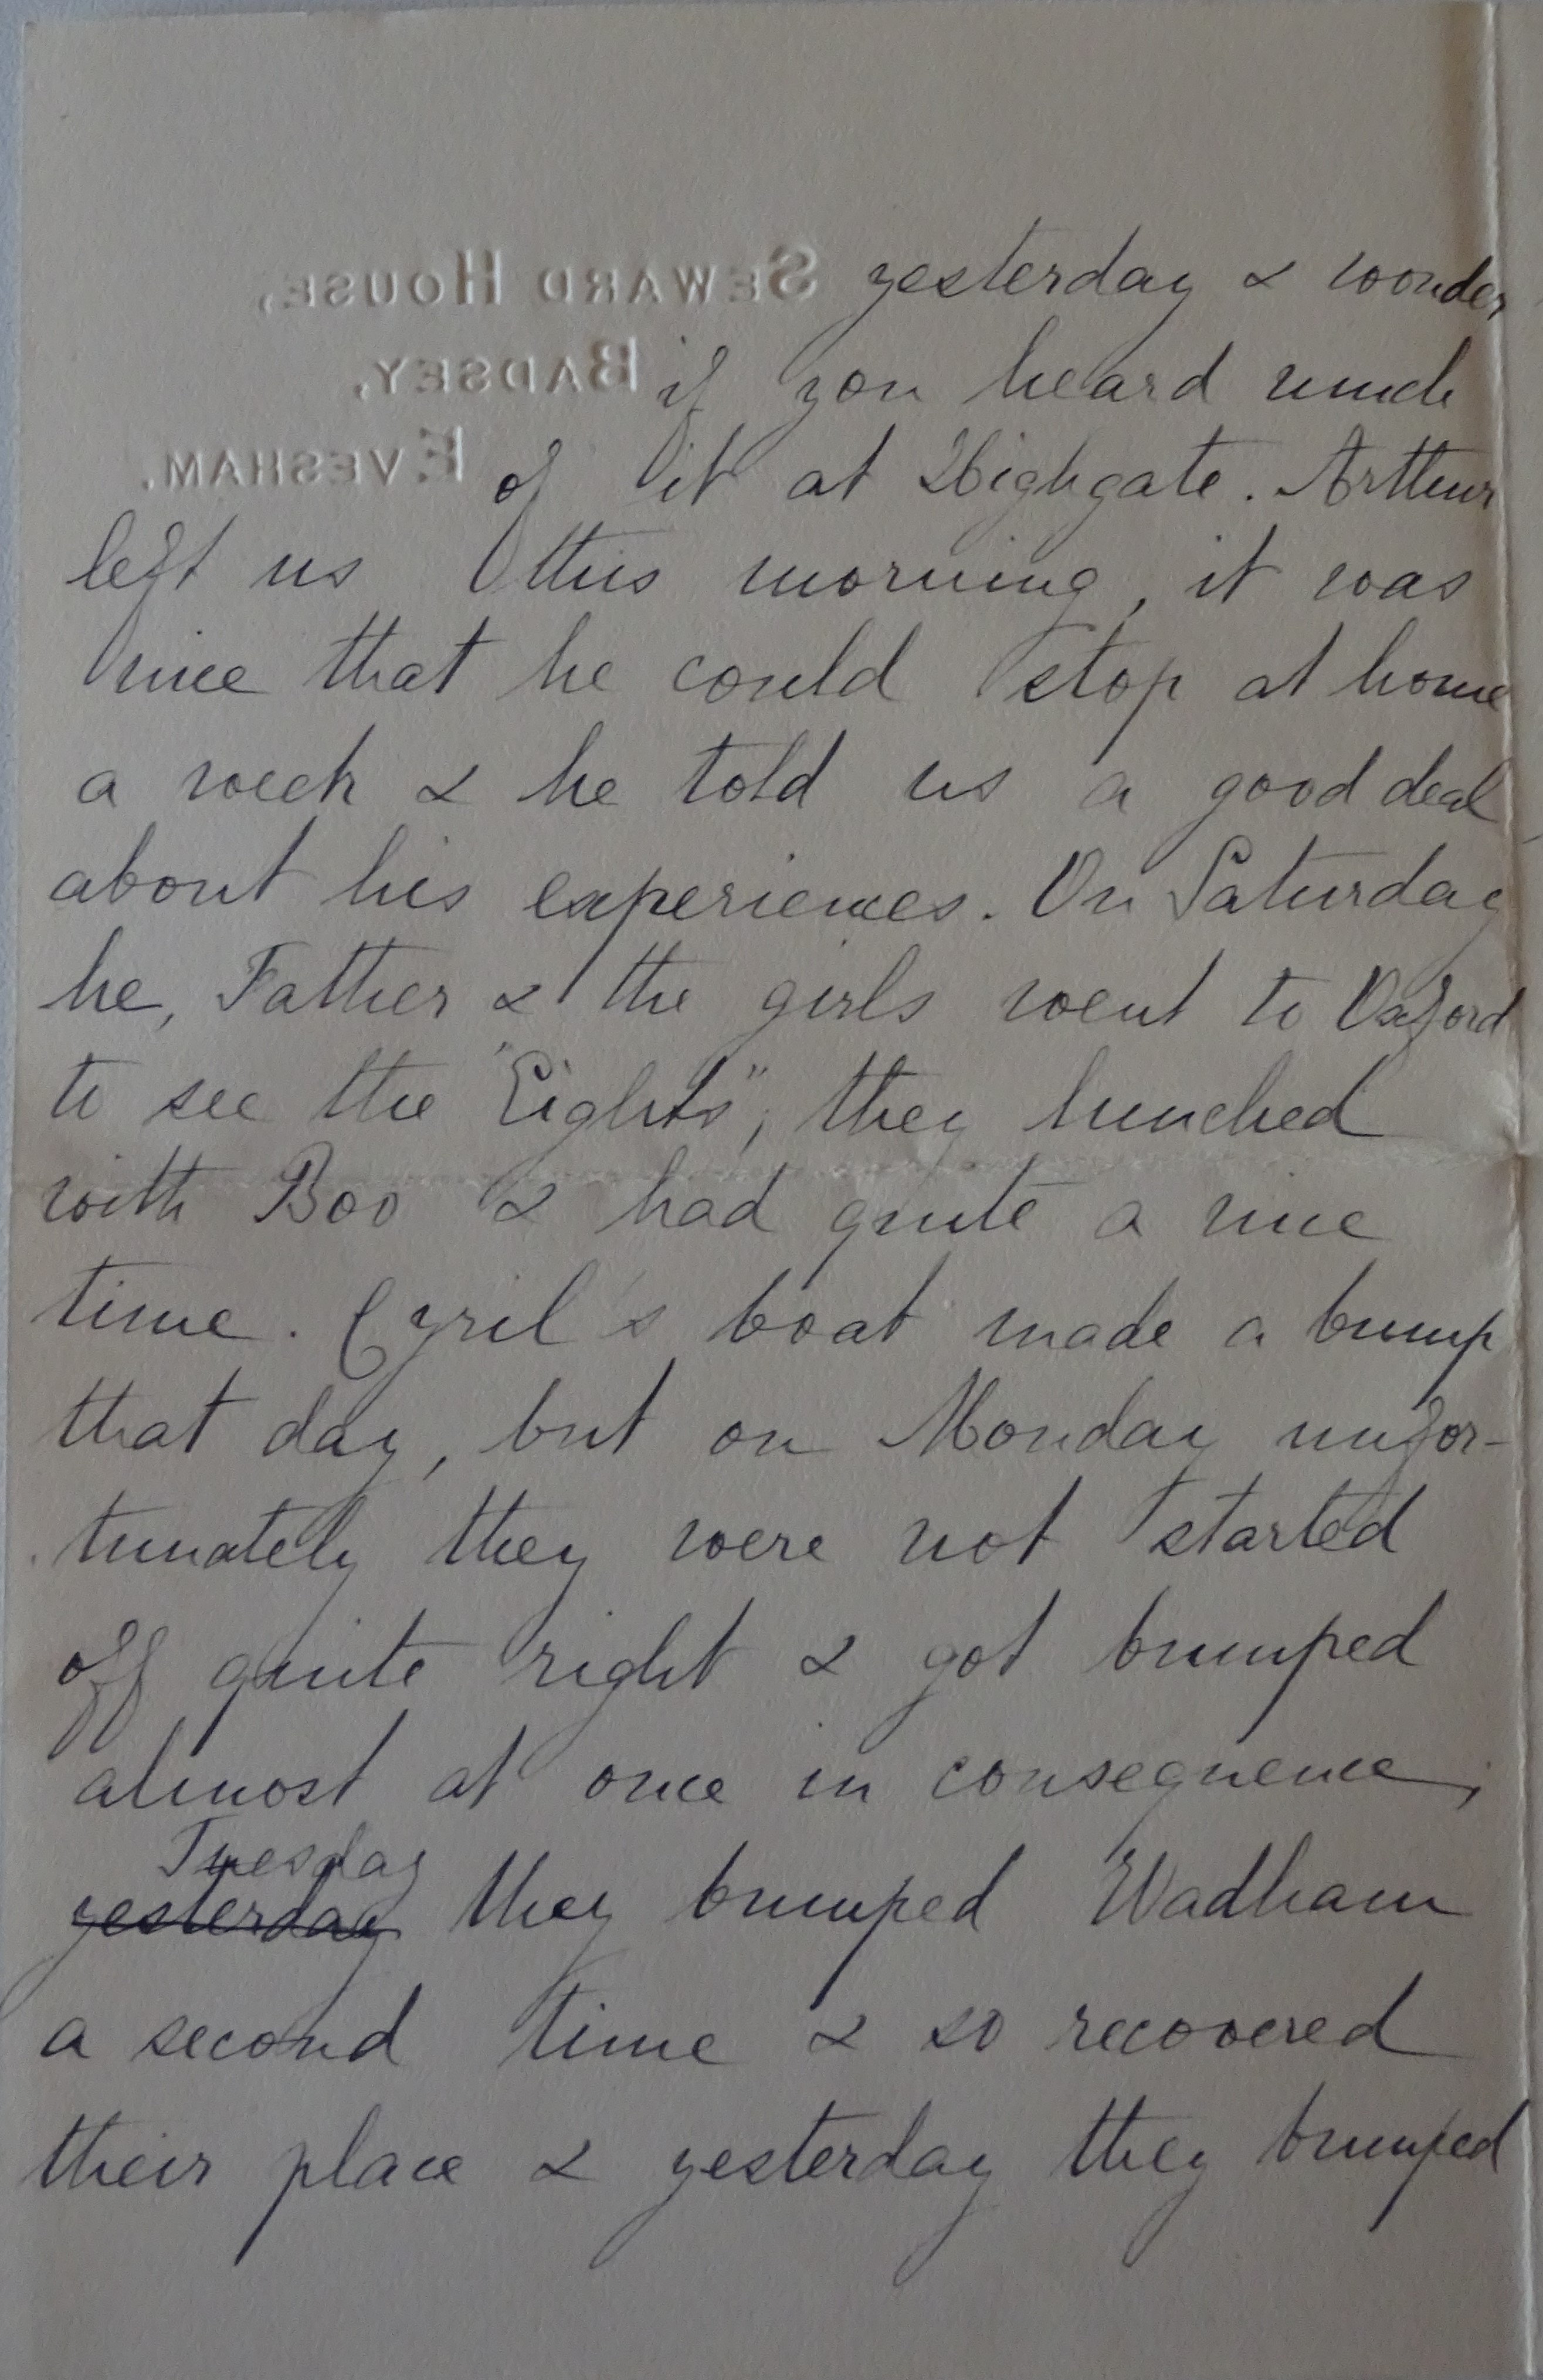 SEWARD HOUSE,
BADSEY,
EVESHAM.
yesterday & wonder
if you heard much
of it at Highgate. Arthur
left us this morning, it was
nice that he could stop at home
a week & he told us a good deal
about his experiences. On Saturday
he, Father & the girls went to Oxford
to see the "Eights", they lunched
with Boo & had quite a nice
time. Cyril's boat made a bump
that day, but on Monday unfor-
tunately they were not started
off quite right & got bumped
almost at once in consequence;
Tuesday
yesterday they bumped Wadham
a second time & so recovered
their place & yesterday they bumped